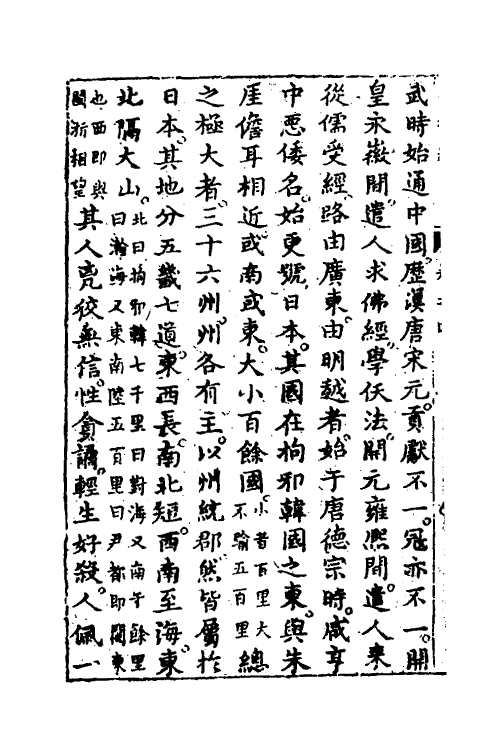 武時始通中國歷漢唐宋元貢獻不一冦亦不一開
皇永徽間遣人求佛經學仸法開元雍熈間遣人来
從儒受經路由廣東由明越者始于唐德宗時咸亨
中悪倭名始更號日本其國在拘邪韓國之東與朱
厓儋耳相近或南或東大小百餘國小者百里大不踰五百里總
之極大者三十六州州各有主以州統郡然皆屬於
日本其地分五畿七道東西長南北短西南至海東
北隔大山北曰拘邪韓七千里曰對海又南千餘里曰瀚海又東南陸五百里曰尹都即關東
也西即與関祈相望其人兠狡無信性貪譎輕生好殺人佩一